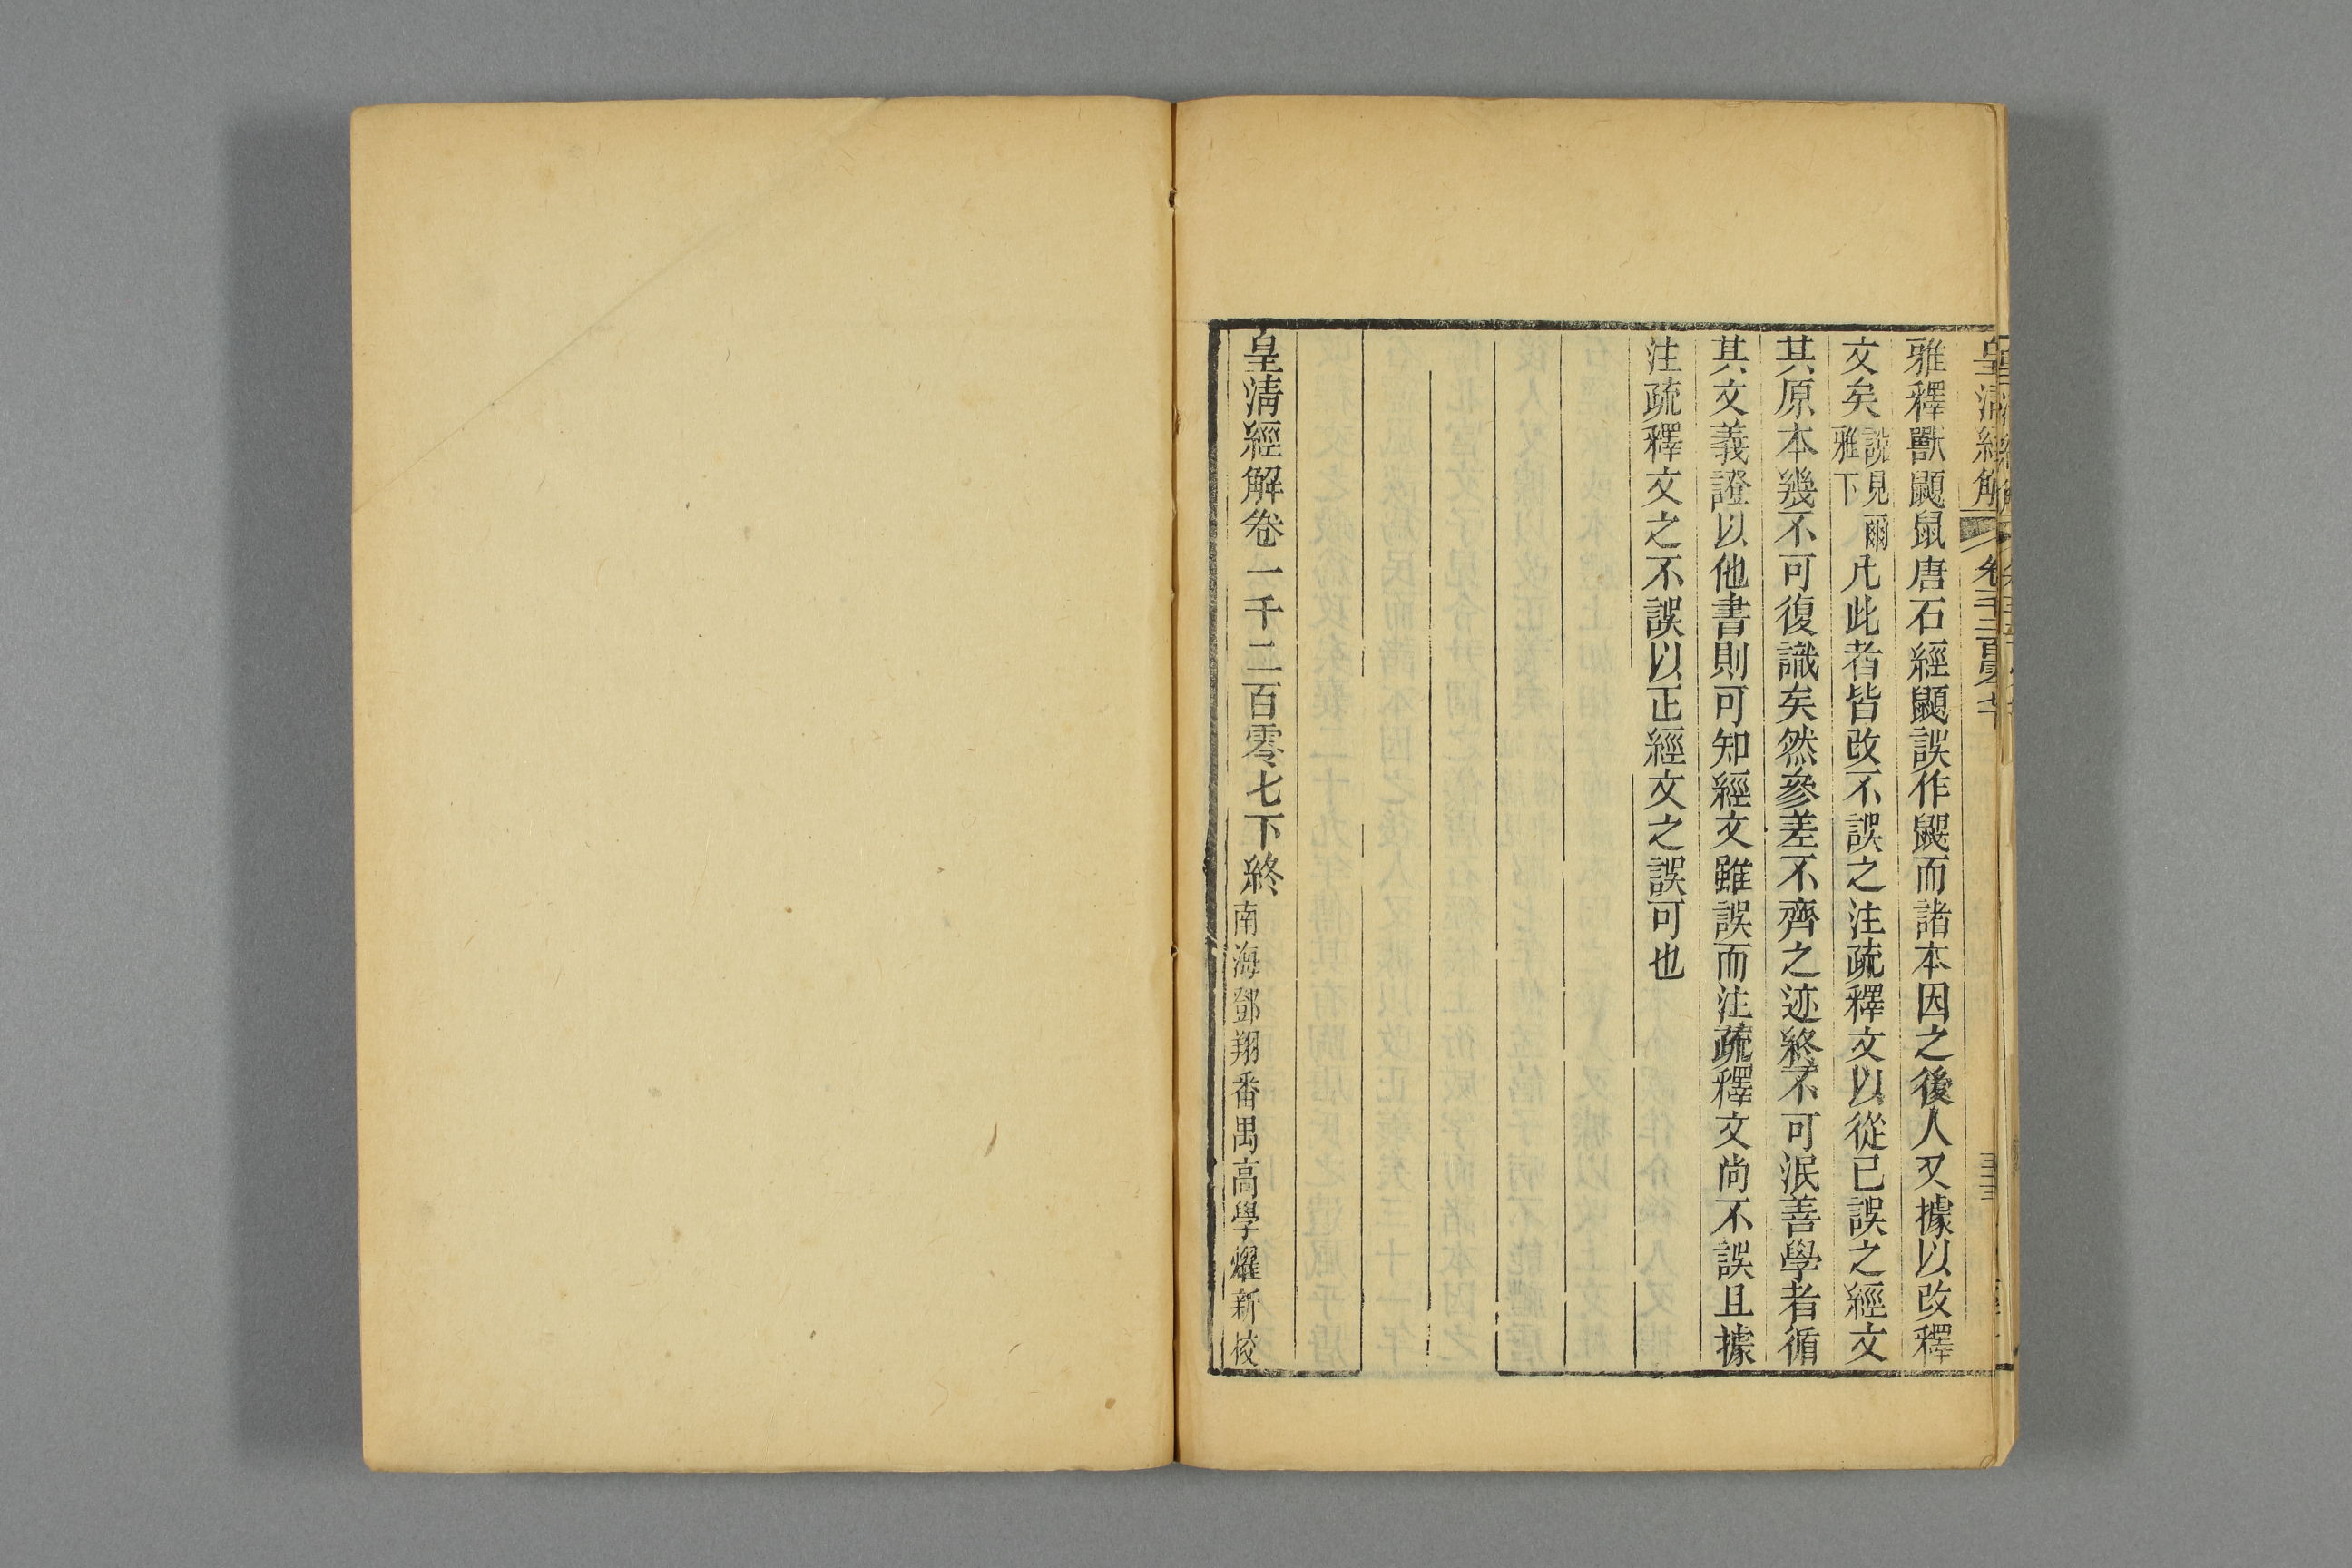 皇清經解
雅釋獸鼮鼠唐石經鼮誤作鼰而諸本因之後人又據以改釋
文矣說見爾雅下凡此者皆改不誤之注疏釋文以從已誤之經文
其原本幾不可復識矣然參差不齊之迹終不可泯善學者循
其文義證以他書則可知經文雖誤而注疏釋文尚不誤且據
注疏釋文之不誤以正經文之誤可也
皇清經解卷一千二百零七下終
南海鄧翔番禺高學燿新校